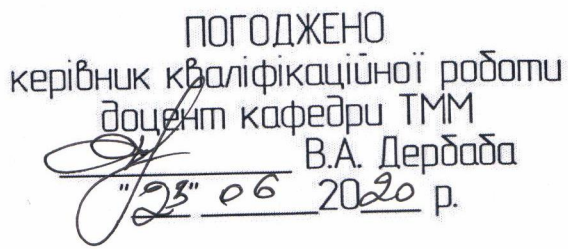 ПОГОДЖЕНО
керівник кваліфікаційної роботи
доцент кафедри ТММ
В.А. Дербаба
"23" 06 2020 р.